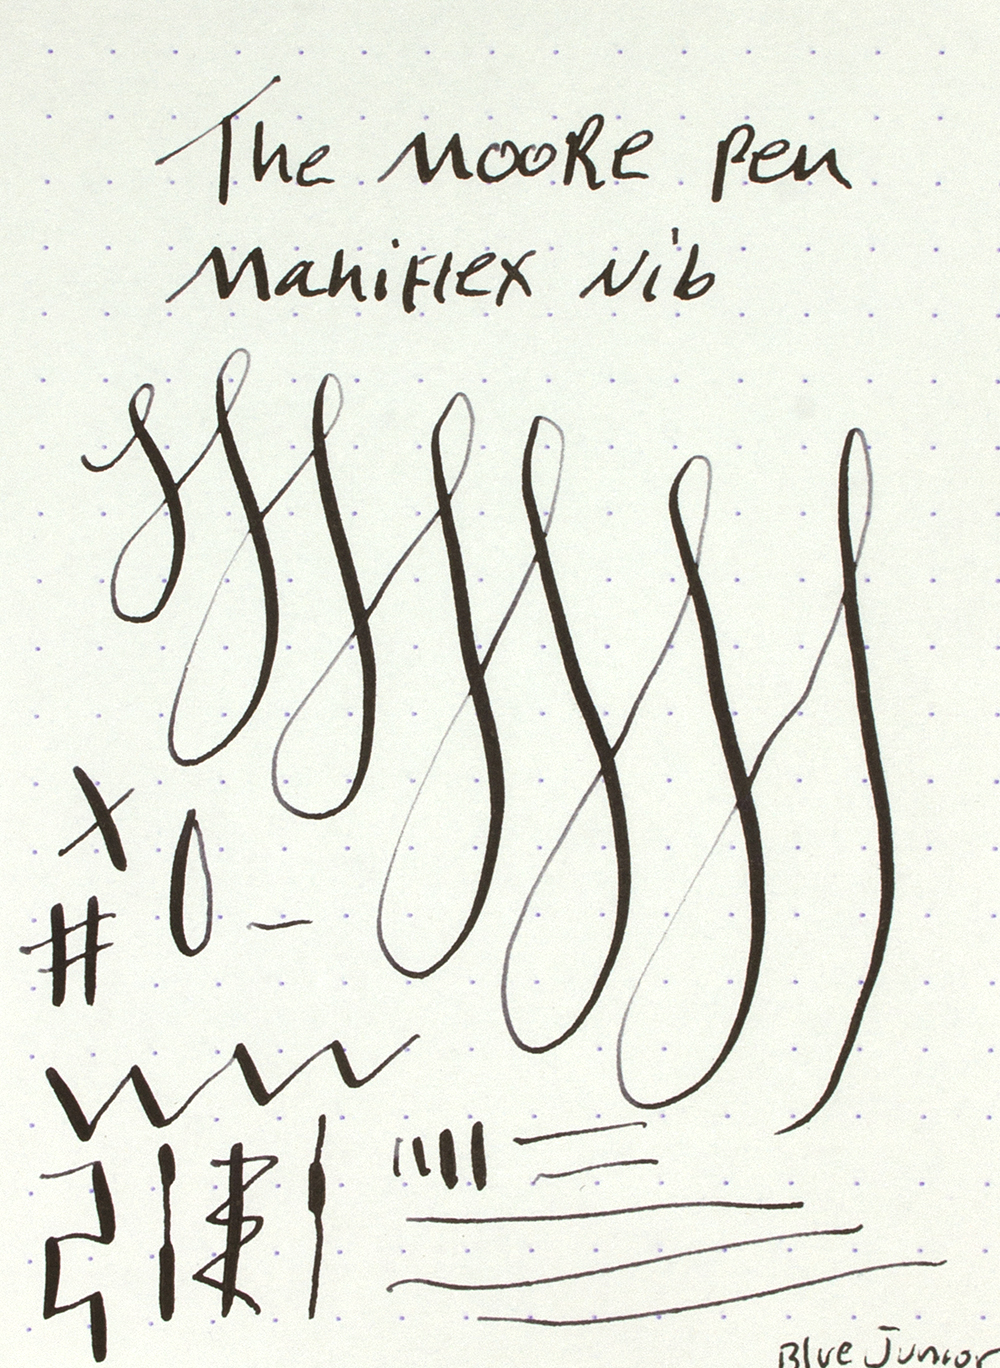 The Moore Pen
Maniflex Nib
Blue Junior